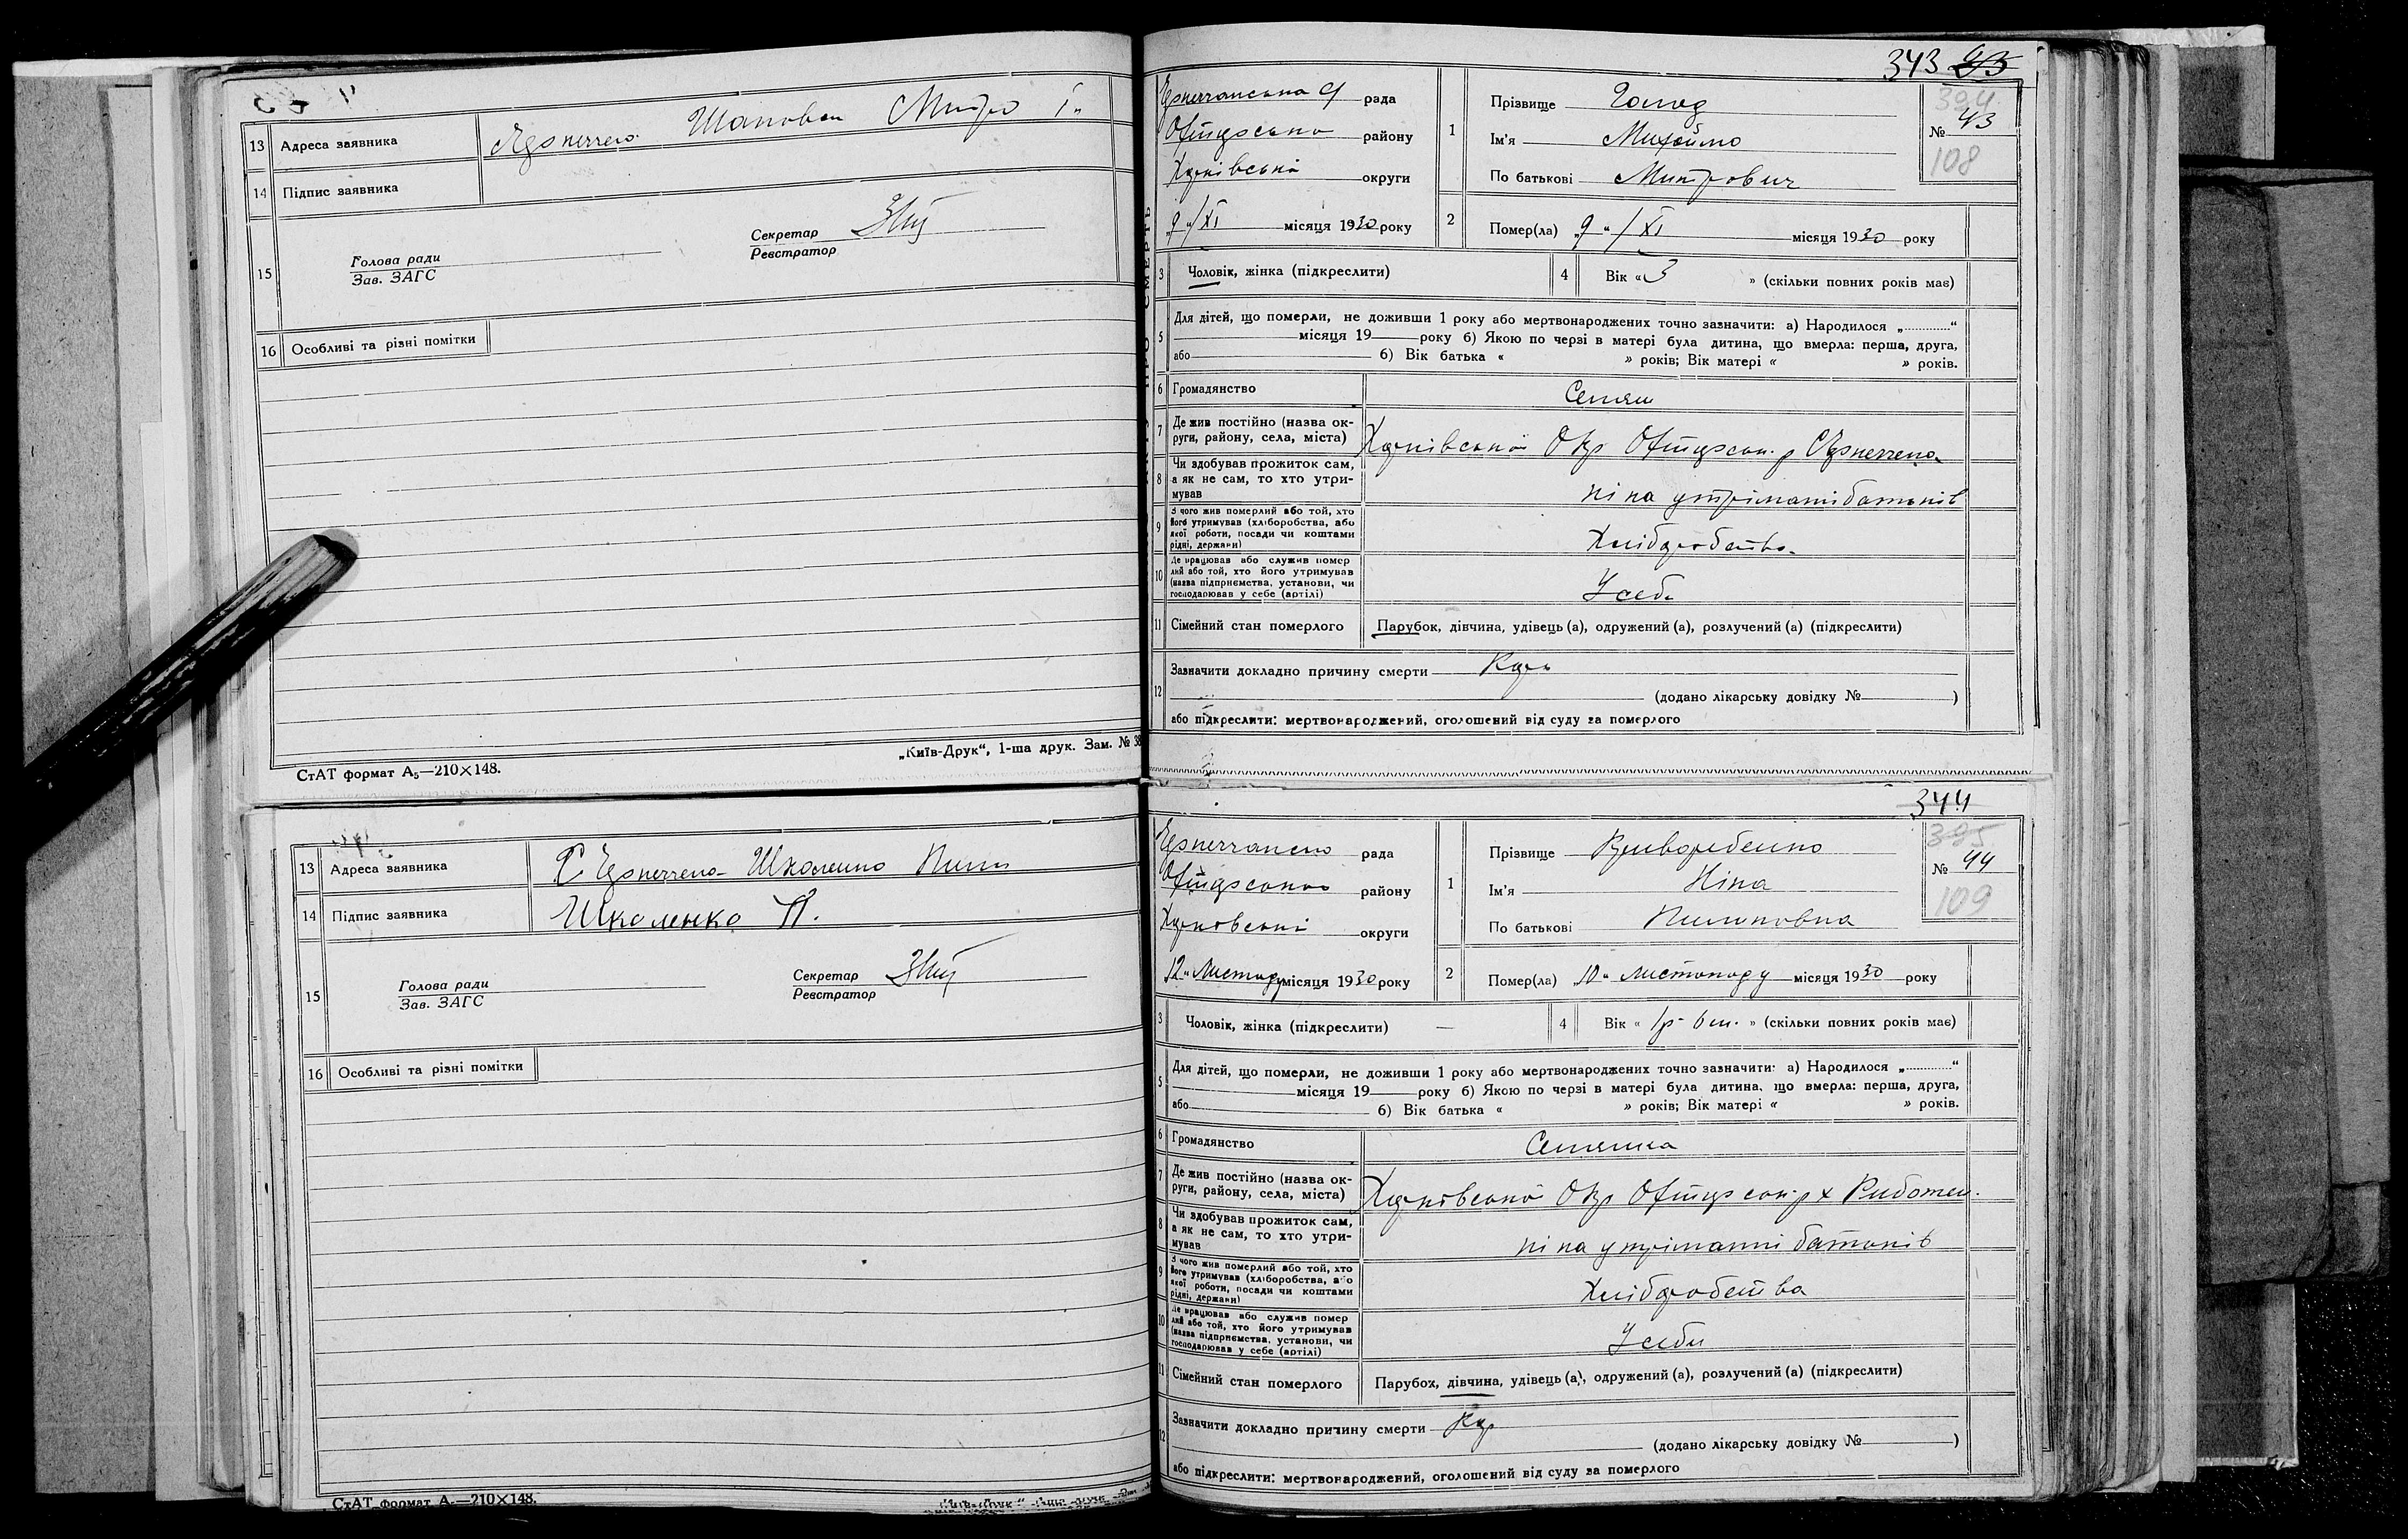 13 Адреса заявника Шаповал Митро І.
14 Підпис заявника
15 Голова ради
Зав. ЗАГС
Секретар
Реєстратор
16 Особливі та різні помітки
„Київ-Друк“, 1-ша друк. Зам. № 38
СтАТ формат А₅—210×148.
13 Адреса заявника С. Школенко Пили
14 Підпис заявника Школенко П.
15 Голова ради
Зав. ЗАГС
Секретар
Реєстратор
16 Особливі та різні помітки
СтАТ формат А₅—210×148.
343
рада
району
Харківської округи
„9“/XI місяця 1930 року
1 Прізвище Голод
Ім'я Михайло
По батькові Митрович
394
№ 43
108
2 Помер(ла) „9“/XI місяця 1930 року
3 Чоловік, жінка (підкреслити)
4 Вік «3» (скільки повних років має)
5 Для дітей, що померли, не доживши 1 року або мертвонароджених точно зазначити: а) Народилося „ “
місяця 19 року б) Якою по черзі в матері була дитина, що вмерла: перша, друга,
або б) Вік батька « » років; Вік матері « » років.
6 Громадянство Селян
7 Де жив постійно (назва ок-
руги, району, села, міста) Харківської Окр
8 Чи здобував прожиток сам,
а як не сам, то хто утри-
мував ні на утріманні батьків
9 З чого жив померлий або той, хто
його утримував (хліборобства, або
якої роботи, посади чи коштами
рідні, держави) Хліборобство
10 Де працював або служив помер
лий або той, хто його утримував
(назва підприємства, установи, чи
господарював у себе (артілі) У себе
11 Сімейний стан померлого Парубок, дівчина, удівець (а), одружений (а), розлучений (а) (підкреслити)
12 Зазначити докладно причину смерти Кір
(додано лікарську довідку № )
або підкреслити: мертвонароджений, оголошений від суду за померлого
344
рада
району
округи
„12“ Листопаду місяця 1930 року
1 Прізвище
Ім'я Ніна
По батькові Пилиповна
395
№ 44
109
2 Помер(ла) „10“ Листопаду місяця 1930 року
3 Чоловік, жінка (підкреслити) —
4 Вік « 1р 6 м. » (скільки повних років має)
5 Для дітей, що померли, не доживши 1 року або мертвонароджених точно зазначити: а) Народилося „ “
місяця 19 року б) Якою по черзі в матері була дитина, що вмерла: перша, друга,
або б) Вік батька « » років; Вік матері « » років.
6 Громадянство Селянка
7 Де жив постійно (назва ок-
руги, району, села, міста) Харківської Окр
8 Чи здобував прожиток сам,
а як не сам, то хто утри-
мував ні на утріманні батьків
9 З чого жив померлий або той, хто
його утримував (хліборобства, або
якої роботи, посади чи коштами
рідні, держави) Хліборобства
10 Де працював або служив помер
лий або той, хто його утримував
(назва підприємства, установи, чи
господарював у себе (артілі) У себе
11 Сімейний стан померлого Парубок, дівчина, удівець (а), одружений (а), розлучений (а) (підкреслити)
12 Зазначити докладно причину смерти Кір
(додано лікарську довідку № )
або підкреслити: мертвонароджений, оголошений від суду за померлого